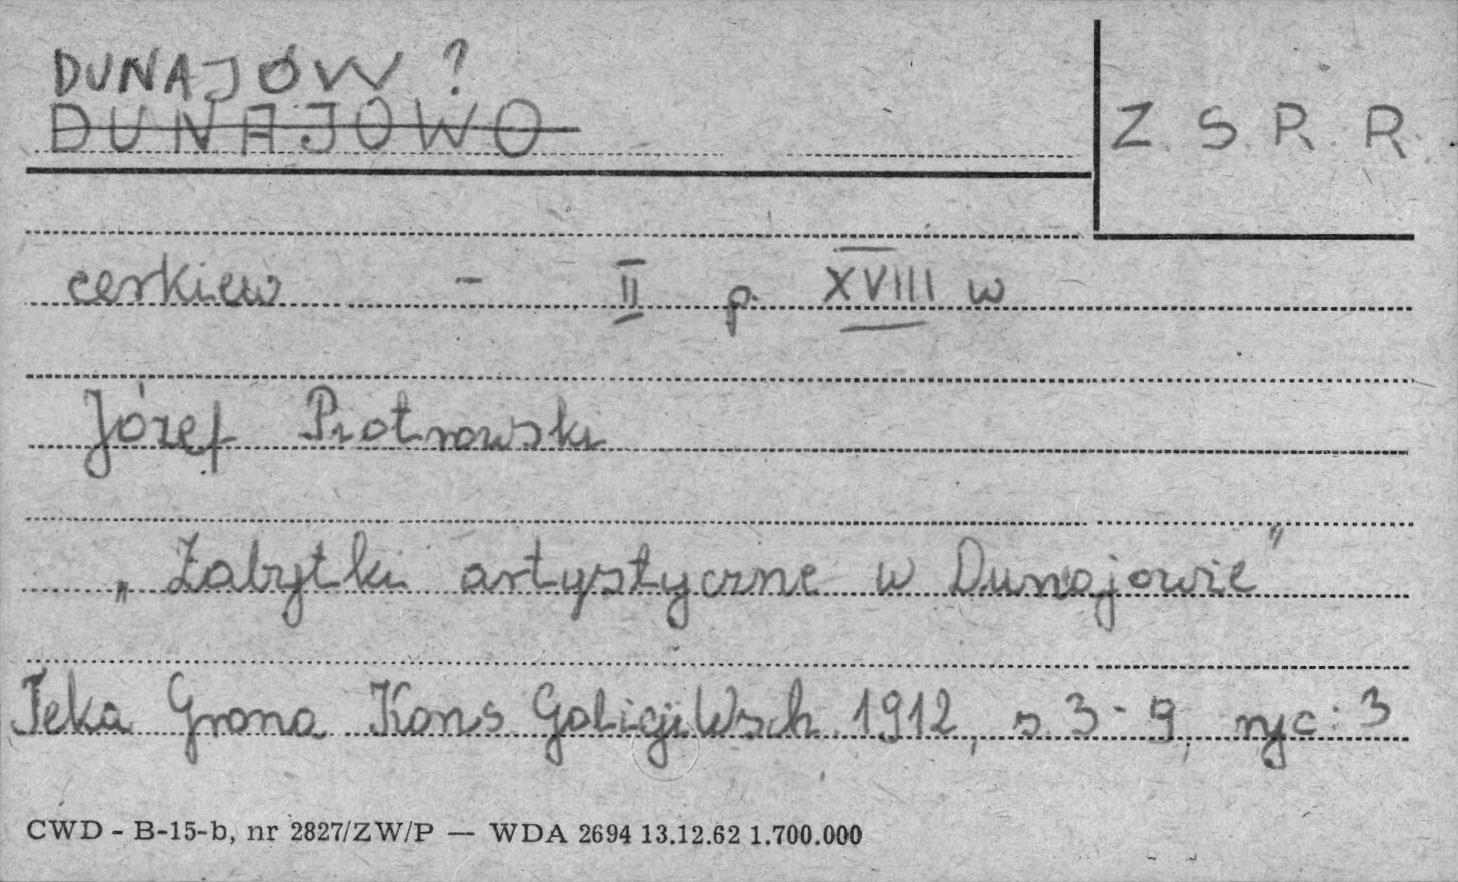 DUNAJÓW ?
DUNAJOWO
Z. S. R. R.
cerkiew - II p. XVIII w
Józef Piotrowski
„Zabytki artystyczne w Dunajowie"
Teka Grona Kons Galicji Wsch. 1912, s. 3-9, ryc: 3
CWD - B-15-b, nr 2827/ZW/P — WDA 2694 13.12.62 1.700.000